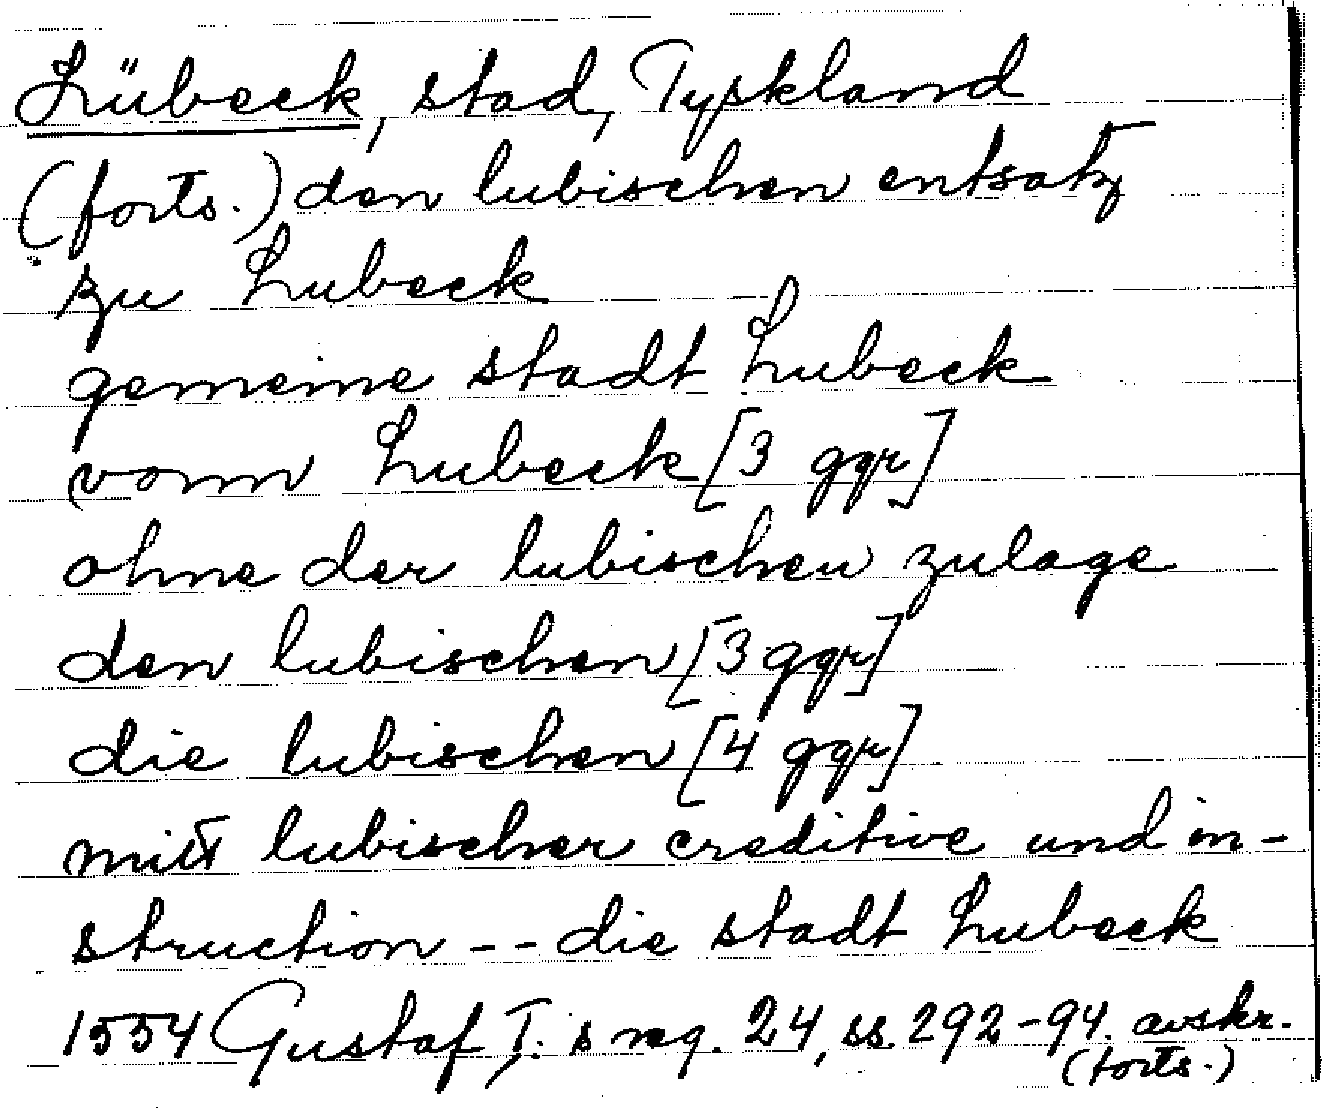 Lübeck, stad, Tyskland
(forts.) den lubischen entsatz
zu Lubeck
gemeine stadt Lubeck
vonn Lubeck [3 ggr]
ohne der lubischen zulage
den lubischen [3 ggr]
die lubischen [4 ggr]
mitt lubischer creditive und in-
struction -- die stadt Lubeck
1554 Gustaf I:s reg. 24, ss. 292-94. avskr.
(forts.)